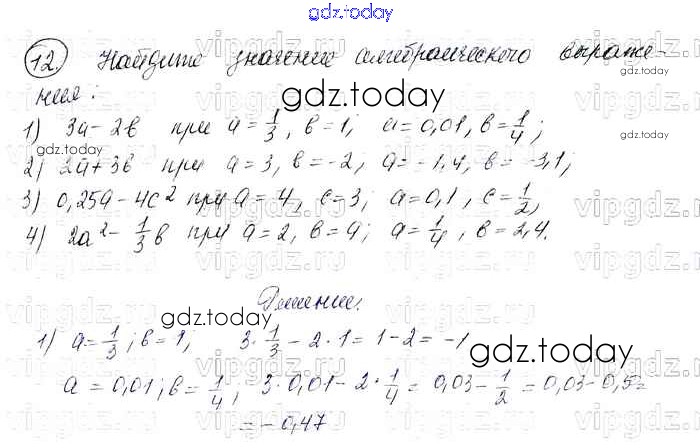 gdz.today
12. Найдите значение алгебраического выраже-
ния:
gdz.today
1) 3a - 2b при a = 1/3, b = 1; a = 0,01, b = 1/4;
2) 2a + 3b при a = 3, b = -2, a = -1,4, b = -3,1;
3) 0,25a - 4c² при a = 4, c = 3; a = 0,1, c = 1/2,
4) 2a² - 1/3 b при a = 2, b = 9; a = 1/4, b = 2,4.
gdz.today
Решение.
1) a = 1/3; b = 1; 3 · 1/3 - 2 · 1 = 1 - 2 = -1
gdz.today
a = 0,01; b = 1/4; 3 · 0,01 - 2 · 1/4 = 0,03 - 1/2 = 0,03 - 0,5 =
= -0,47